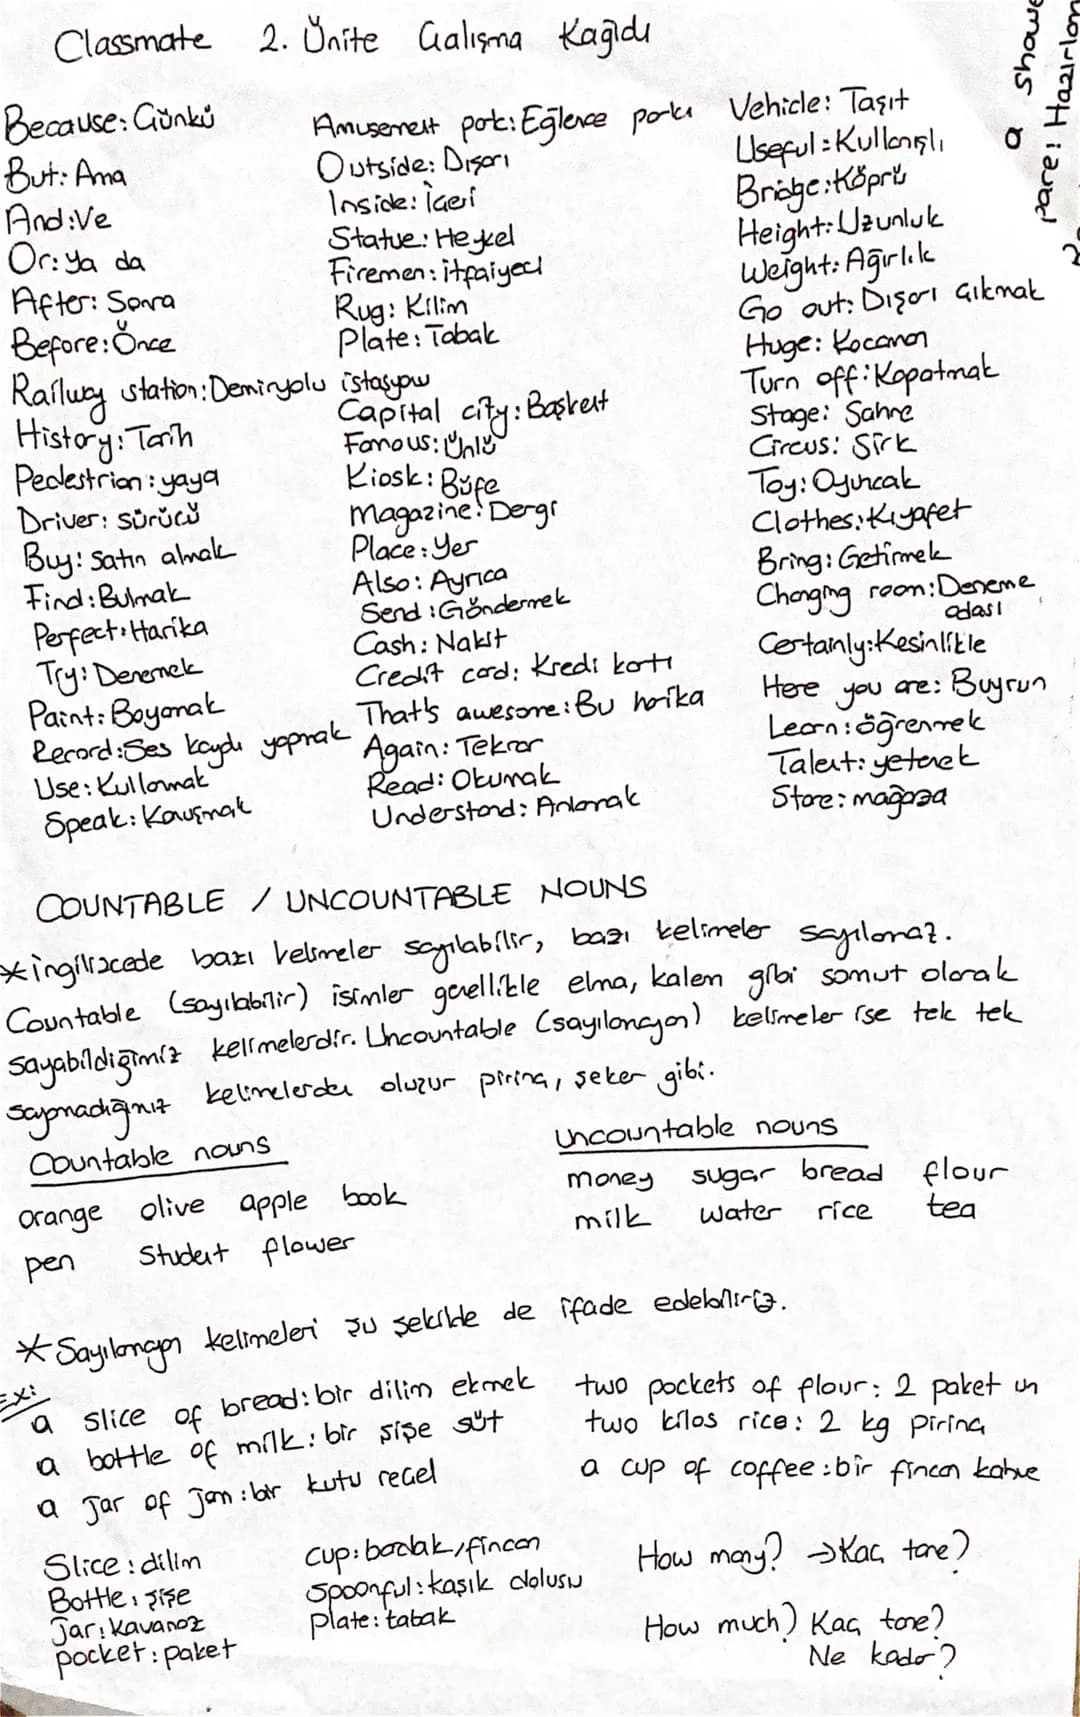 Classmate 2. Ünite Çalışma Kağıdı
Because: Çünkü
But: Ama
And: Ve
Or: Ya da
After: Sonra
Before: Önce
Railway station: Demiryolu istasyonu
History: Tarih
Pedestrian: yaya
Driver: sürücü
Buy: Satın almak
Find: Bulmak
Perfect: Harika
Try: Denemek
Paint: Boyamak
Record: Ses kaydı yapmak
Use: Kullanmak
Speak: Konuşmak
Amusement park: Eğlence parkı
Outside: Dışarı
Inside: İçeri
Statue: Heykel
Firemen: itfaiyeci
Rug: Kilim
Plate: Tabak
Capital city: Başkent
Famous: Ünlü
Kiosk: Büfe
Magazine: Dergi
Place: Yer
Also: Ayrıca
Send: Göndermek
Cash: Nakit
Credit card: Kredi kartı
That's awesome: Bu harika
Again: Tekrar
Read: Okumak
Understand: Anlamak
Vehicle: Taşıt
Useful: Kullanışlı
Bridge: Köprü
Height: Uzunluk
Weight: Ağırlık
Go out: Dışarı çıkmak
Huge: Kocaman
Turn off: Kapatmak
Stage: Sahne
Circus: Sirk
Toy: Oyuncak
Clothes: Kıyafet
Bring: Getirmek
Changing room: Deneme odası
Certainly: Kesinlikle
Here you are: Buyrun
Learn: öğrenmek
Talent: yetenek
Store: mağaza
COUNTABLE / UNCOUNTABLE NOUNS
* ingilizcede bazı kelimeler sayılabilir, bazı kelimeler sayılamaz.
Countable (sayılabilir) isimler genellikle elma, kalem gibi somut olarak
sayabildiğimiz kelimelerdir. Uncountable (sayılamayan) kelimeler ise tek tek
sayamadığımız kelimelerden oluşur pirinç, şeker gibi.
Countable nouns
orange olive apple book
pen student flower
Uncountable nouns
money sugar bread flour
milk water rice tea
* Sayılamayan kelimeleri şu şekilde de ifade edebiliriz.
Ex:
a slice of bread: bir dilim ekmek
a bottle of milk: bir şişe süt
a jar of jam: bir kutu reçel
two pockets of flour: 2 paket un
two kilos rice: 2 kg pirinç
a cup of coffee: bir fincan kahve
Slice: dilim
Bottle: şişe
Jar: kavanoz
pocket: paket
cup: bardak, fincan
spoonful: kaşık dolusu
plate: tabak
How many? → Kaç tane?
How much? Kaç tane?
Ne kadar?
a
pare: Hazırlan